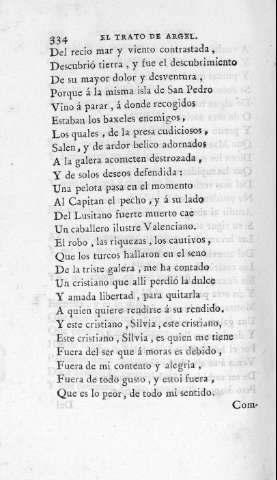 334 EL TRATO DE ARGEL.
Del recio mar y viento contrastada,
Descubrió tierra, y fue el descubrimiento
De su mayor dolor y desventura,
Porque á la misma isla de San Pedro
Vino á parar, á donde recogidos
Estaban los baxeles enemigos,
Los quales, de la presa cudiciosos,
Salen, y de ardor belico adornados
A la galera acometen destrozada,
Y de solos deseos defendida:
Una pelota pasa en el momento
Al Capitan el pecho, y á su lado
Del Lusitano fuerte muerto cae
Un caballero ilustre Valenciano.
El robo, las riquezas, los cautivos,
Que los turcos hallaron en el seno
De la triste galera, me ha contado
Un cristiano que alli perdió la dulce
Y amada libertad, para quitarla
A quien quiere rendirse á su rendido.
Y este cristiano, Silvia, este cristiano,
Este cristiano, Silvia, es quien me tiene
Fuera del ser que á moras es debido,
Fuera de mi contento y alegria,
Fuera de todo gusto, y estoi fuera,
Que es lo peor, de todo mi sentido.
Com-